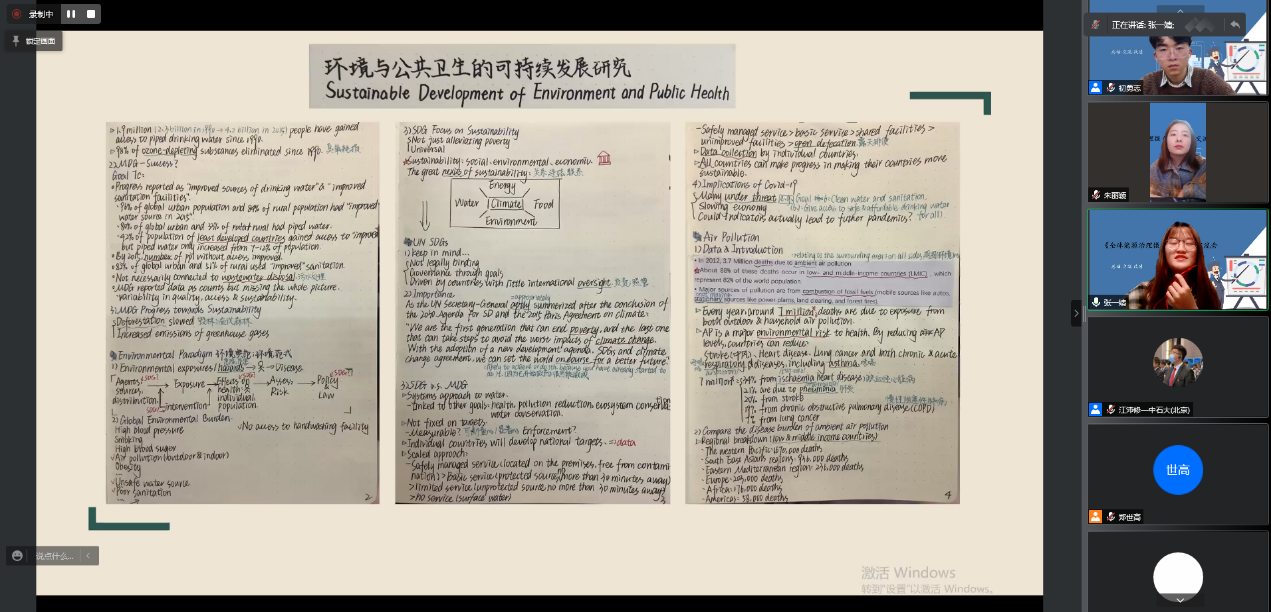 录制中
锁定画面
环境与公共卫生的可持续发展研究
Sustainable Development of Environment and Public Health
1.9 million (2.3 billion in 1990 → 4.2 billion in 2015) people have gained
access to piped drinking water since 1990.
98% of ozone-depleting substances eliminated since 1990.
2) MDG-Success?
Goal 7c:
Progress reported as "improved sources of drinking water" & "improved
sanitation facilities".
96% of global urban population and 84% of rural population had "improved
water source in 2015"
of global urban and 33% of rural had piped water.
42% of population of least developed countries gained access to "improved"
but piped water only increased from 7-12% of population.
By 2015, number of ppl without access improved.
82% of global urban and 51% of rural used "improved" sanitation.
Not necessarily connected to wastewater disposal
MDG reported data as counts but missing the whole picture.
variability in quality, access & sustainability.
3) MDG Progress towards Sustainability
Deforestation slowed
Increased emissions of greenhouse gases
Environmental Paradigm 环境范式
1) Environmental exposures/hazards → → Disease
Agents/ sources, distribution
Exposure
Effects on health: individual population
Assess Risk
Policy & Law
intervention
2) Global Environmental Burden
No access to handwashing facility
High blood pressure
Smoking
High blood sugar
Air pollution (outdoor & indoor)
Obesity
Unsafe water source
Poor sanitation
2
3) SDG Focus on Sustainability
Not just alleviating poverty
Universal
Sustainability: social-environmental-economic
The great nexus of sustainability:
Energy
Water Climate Food
Environment
UN SDGs
1) Keep in mind...
Not legally binding
Governance through goals
Driven by countries with little international oversight
2) Importance
As the UN Secretary-General aptly summarized after the conclusion of
the 2030 Agenda for SD and the 2015 Paris Agreement on climate:
"We are the first generation that can end poverty, and the last one
that can take steps to avoid the worst impacts of climate change.
With the adoption of a new development agenda, SDGs and climate
change agreement, we can set the world on course for a better future."
3) SDG v.s. MDG
Systems approach to water.
-Linked to other goals: health, pollution reduction, ecosystem
water conservation.
Not fixed on targets.
-Measurable? Enforcement?
Individual countries will develop national targets. ⇒ data
Scaled approach:
-Safely managed service (located on the premises, free from contami
nation) > Basic service (protected source, no more than 30 minutes away)
> limited service (unprotected source no more than 30 minutes away)
> no service (surface water)
-Safely managed service > basic service > shared facilities >
unimproved facilities > open defecation
Data collection by individual countries.
All countries can make progress in making their countries more
sustainable.
4) Implications of Covid-19
Many under threat Goal 6: Clean water and sanitation.
Slowing economy
Could indicators actually lead to further pandemics?
Air Pollution
1) Data & Introduction
• In 2012, 3.7 Million deaths due to ambient air pollution
About 88% of these deaths occur in low- and middle-income countries (LMIC), which
represent 82% of the world population
• Major sources of pollution are from combustion of fossil fuels (mobile sources like autos,
stationary sources like power plants, land clearing, and forest fires)
Every year around 7 million deaths are due to exposure from
both outdoor & household air pollution.
AP is a major environmental risk to health. By reducing AP
levels, countries can reduce:
Stroke, Heart disease, Lung cancer and both chronic & acute
respiratory diseases, including asthma.
7 million: 34% from ischaemia heart disease
21% are due to pneumonia
20% from stroke
19% from chronic obstructive pulmonary disease (COPD)
7% from lung cancer
2) Compare the disease burden of ambient air pollution
Regional breakdown (low & middle income countries)
-The western Pacific: 1,670,000 deaths
-South East Asians regions: 936,000 deaths
-Eastern Mediterranean region: 236,000 deaths
-Europe: deaths
-Africa: 176,000 deaths
-Americas: 58,000 deaths
4
说点什么...
激活 Windows
转到"设置"以激活 Windows。
正在讲话: 张一婧;
初勇志
朱丽颖
张一婧
江沛修—中石大(北京)
世高
郑世高